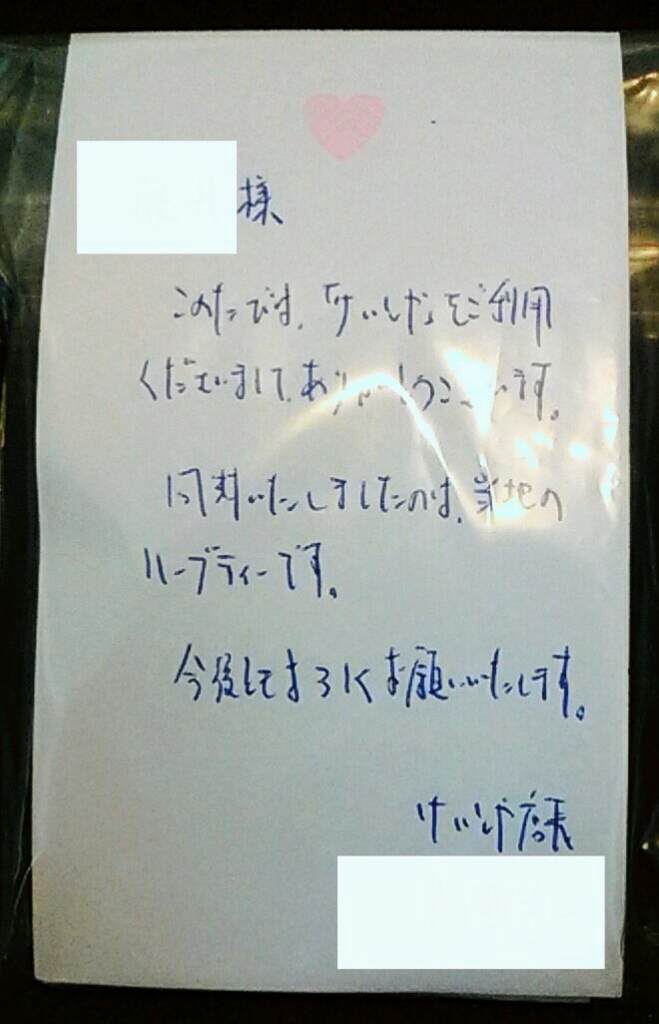 様
このたびは、「けいしや」をご利用
くださいまして、ありがとうございます。
同封いたしましたのは、当地の
ハーブティーです。
今後ともよろしくお願いいたします。
けいしや店長